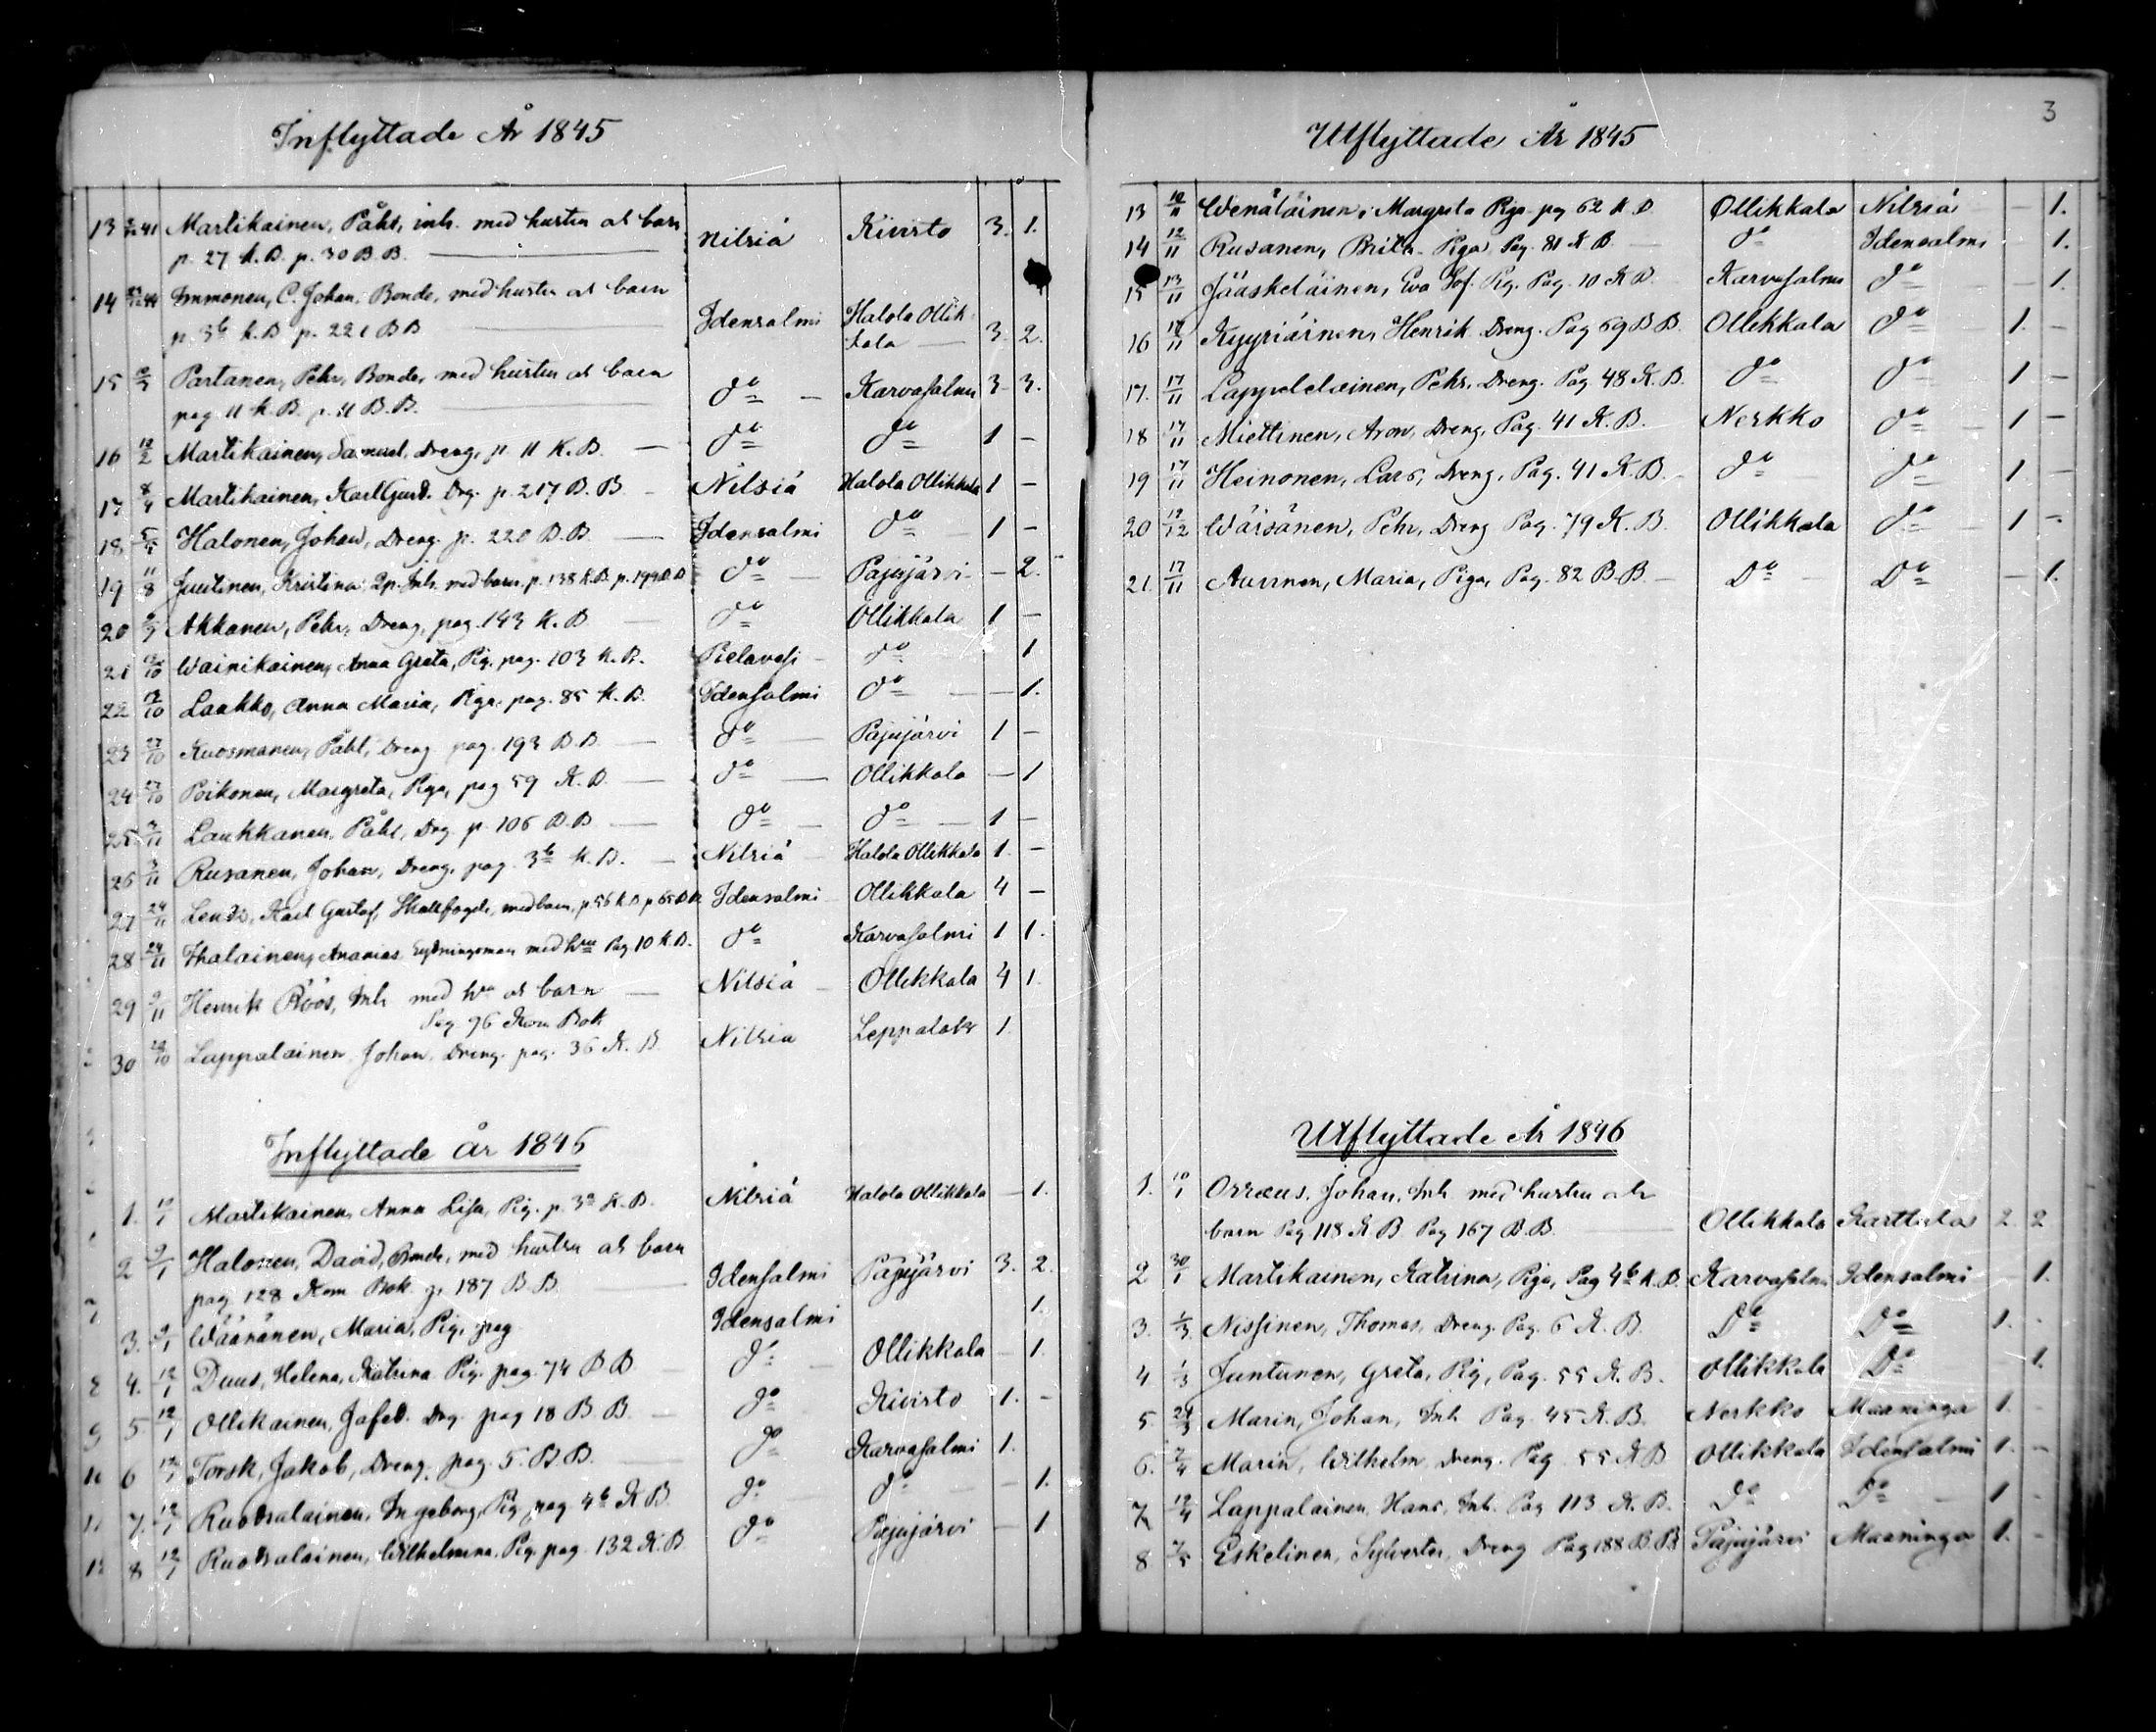 Inflyttade År 1845
13 41 Martikainen, Påhl, inh. med hustru ok barn
p. 27 K.B. p. 30 B.B. Nilsiä Kivisto 3. 1.
14 44 Immonen, C. Johan, Bonde, med hustru ok barn
p. 3b K.B. p. 221 B.B. Idensalmi Halola Ollik-
kala 3. 2.
15 Partanen, Pehr, Bonde, med hustru ok barn
pag. 11 K.B. p. 11 B.B. do Karvasalmi 3 3.
16 12/2 Martikainen, Samuel, Dreng, p. 11 K.B. do do 1 -
17 8/4 Martikainen, Karl Gust. Drg. p. 217 B.B. Nilsiä Halola Ollikkala 1 -
18 Halonen, Johan, Dreng. p. 220 B.B. Idensalmi do 1 -
19 11/8 Juutinen, Kristina, Inh. med barn. p. 138 K.B. p. 199 B.B. do Pajujärvi - 2.
20 Akkanen, Pehr, Dreng, pag. 143 K.B do Ollikkala 1 -
21 Wainikainen, Anna Greta, Pig. pag. 103 K.B. Pielavesi do 1
22 Laukko, Anna Maria, Piga, pag. 85 K.B. Idensalmi do - 1.
23 27/10 Kuosmanen, Påhl, Dreng pag. 193 B.B. do Pajujärvi 1 -
24 27/10 Poikonen, Margreta, Piga, pag 59 K.B. do Ollikkala - 1
25 Laukkanen, Påhl, Drg p. 106 B.B do do 1 -
26 Rusanen, Johan, Dreng, pag. 3b K.B. Nilsiä Halola Ollikkala 1. -
27 24/11 Karl Gustaf, med barn, p. 56 K.B p. 65 B.B. Idensalmi Ollikkala 4 -
28 24/11 Ananias med hru Pag 10 K.B. do Karvasalmi 1 1.
29 9/11 Henrik Röös, Inh med hru ok barn Nilsiä Ollikkala 4 1.
Pag 96 Kom Bok
30 Lappalainen Johan, Dreng. pag. 36 K.B Nilsia 1.
Inflyttade år 1846
1. Martikainen, Anna Lisa, Pig. p. 3a K.B. Nilsiä Halola Ollikkala - 1.
2 9/1 Halonen, David, Bonde, med hustru ok barn
pag 128 Kom Bok p. 187 B.B. Idensalmi Pajujärvi 3. 2.
3. 9/1 Wäänänen, Maria, Pig, pag Idensalmi 1.
4. 12/1 Duus, Helena, Katrina Pig. pag. 74 B B do Ollikkala - 1.
5 12/1 Ollikainen, Jafed. Drg. pag 18 B.B. do Kivisto 1. -
6 12/1 Torsk, Jakob, Dreng, pag. 5. B.B. do Karvasalmi 1.
7. 12/1 Ruotsalainen, Ingeborg, Pig, pag. 4b K B. do do - 1.
8 12/1 Ruotsalainen, Wilhelmina. Pig. pag. 132 K.B. do Pajujärvi - 1
3
Utflyttade År 1845
13 Wenäläinen, Margreta Piga pag 62 K.B. Ollikkala Nilsiä - 1.
14 12/11 Rusanen, Brita Piga, Pag. 81 K B. do Idensalmi - 1.
15 13/11 Jääskeläinen, Eva Sof. Pig. Pag. 10 K B. Karvasalmi do - 1.
16 Kyyriäinen, Henrik Dreng. Pag 69 B B. Ollikkala do 1. -
17. 17/11 Lappeteläinen, Pehr, Dreng. Pag 48 K.B. do do 1 -
18 17/11 Miettinen, Aron, Dreng, Pag. 41 K.B. Nerkko do 1 -
19 17/11 Heinonen, Lars, Dreng, Pag. 41 K.B. do do 1 -
20 12/12 Wäisänen, Pehr, Dreng Pag. 79 K.B. Ollikkala do 1 -
21. 17/11 Maria, Piga, Pag. 82 B.B. Do Do - 1.
Utflyttade År 1846
1. 10/1 Orræus, Johan, Inh med hustru ok
barn Pag 118 K B Pag 167 B.B. Ollikkala Karttula 2. 2
2 30/1 Martikainen, Katrina, Piga, Pag 4b K.B. Karvasalmi Idensalmi - 1.
3. 1/3 Nissinen, Thomas, Dreng. Pag. 6 K.B. Do Do 1. -
4 1/3 Juntunen, Greta, Pig, Pag. 55 K.B. Ollikkala Do 1.
5 24/3 Marin, Johan, Inh. Pag. 45 K.B. Nerkko Maaninga 1. -
6. Marin, Wilhelm, Dreng. Pag. 55 K B Ollikkala Idensalmi 1. -
7 12/4 Lappalainen, Hans, Inh. Pag 113 K.B. Do Do 1 -
8 7/5 Eskelinen, Sylvester, Dreng Pag 188 B.B. Pajujärvi Maaninga 1. -